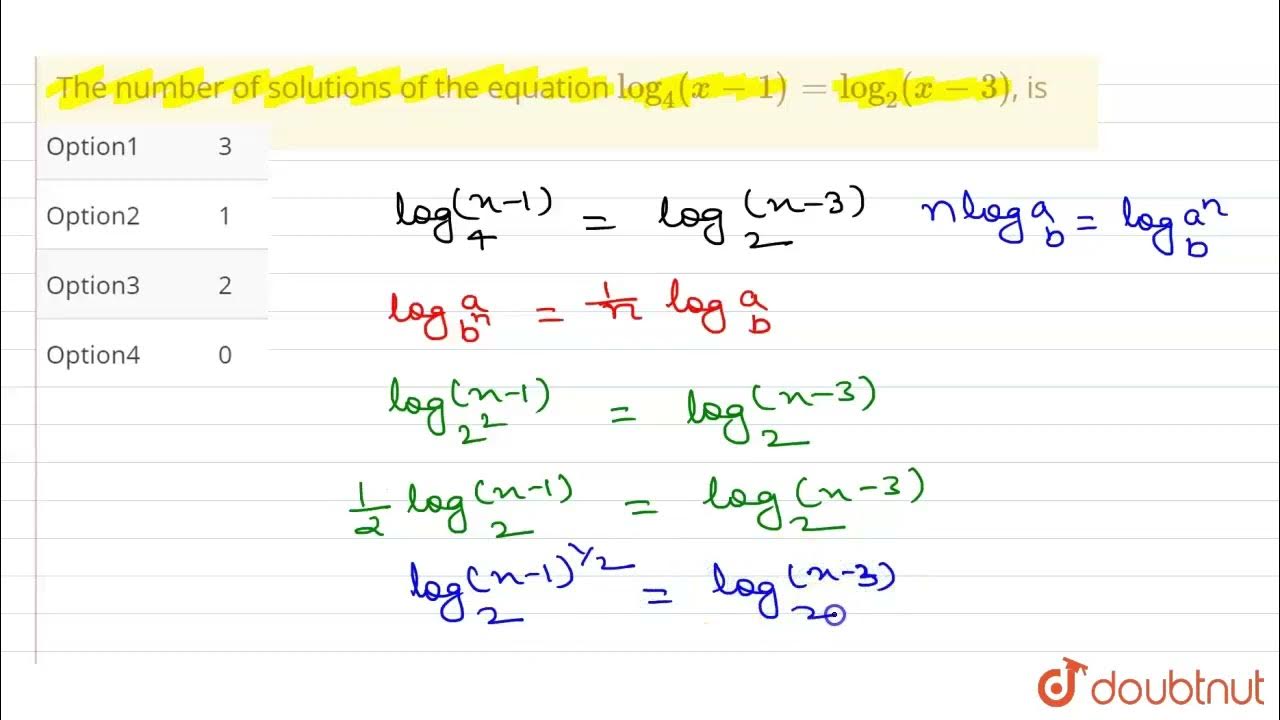 The number of solutions of the equation log₄(x − 1) = log₂(x − 3), is
Option1 3
Option2 1
Option3 2
Option4 0
log₄(x-1) = log₂(x-3) n log_b a = log_b aⁿ
log_bⁿ a = 1/n log_b a
log_2² (x-1) = log₂(x-3)
1/2 log₂(x-1) = log₂(x-3)
log₂(x-1)^1/2 = log₂(x-3)
doubtnut